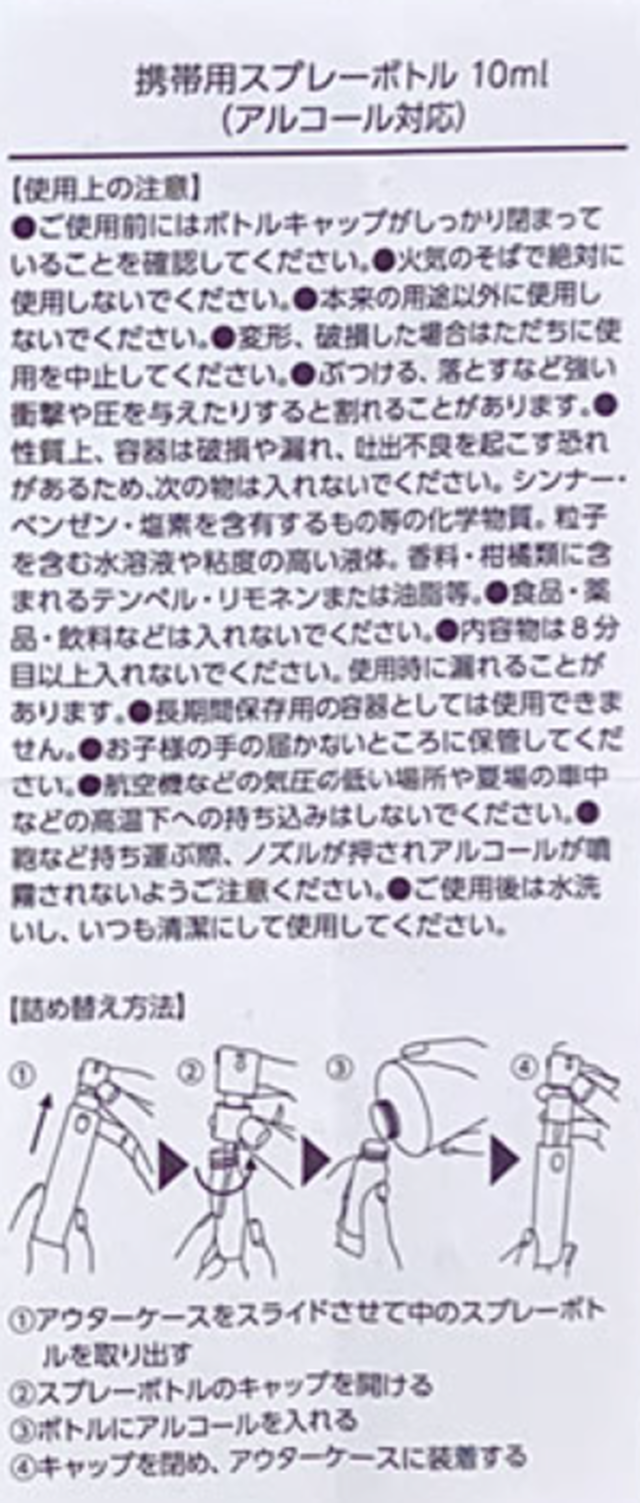 携帯用スプレーボトル 10ml
(アルコール対応)
【使用上の注意】
●ご使用前にはボトルキャップがしっかり閉まって
いることを確認してください。●火気のそばで絶対に
使用しないでください。●本来の用途以外に使用し
ないでください。●変形、破損した場合はただちに使
用を中止してください。●ぶつける、落とすなど強い
衝撃や圧を与えたりすると割れることがあります。●
性質上、容器は破損や漏れ、吐出不良を起こす恐れ
があるため、次の物は入れないでください。シンナー・
ベンゼン・塩素を含有するもの等の化学物質。粒子
を含む水溶液や粘度の高い液体。香料・柑橘類に含
まれるテンペル・リモネンまたは油脂等。●食品・薬
品・飲料などは入れないでください。●内容物は8分
目以上入れないでください。使用時に漏れることが
あります。●長期間保存用の容器としては使用できま
せん。●お子様の手の届かないところに保管してくだ
さい。●航空機などの気圧の低い場所や夏場の車中
などの高温下への持ち込みはしないでください。●
鞄など持ち運ぶ際、ノズルが押されアルコールが噴
霧されないようご注意ください。●ご使用後は水洗
いし、いつも清潔にして使用してください。
【詰め替え方法】
① ② ③ ④
①アウターケースをスライドさせて中のスプレーボト
ルを取り出す
②スプレーボトルのキャップを開ける
③ボトルにアルコールを入れる
④キャップを閉め、アウターケースに装着する